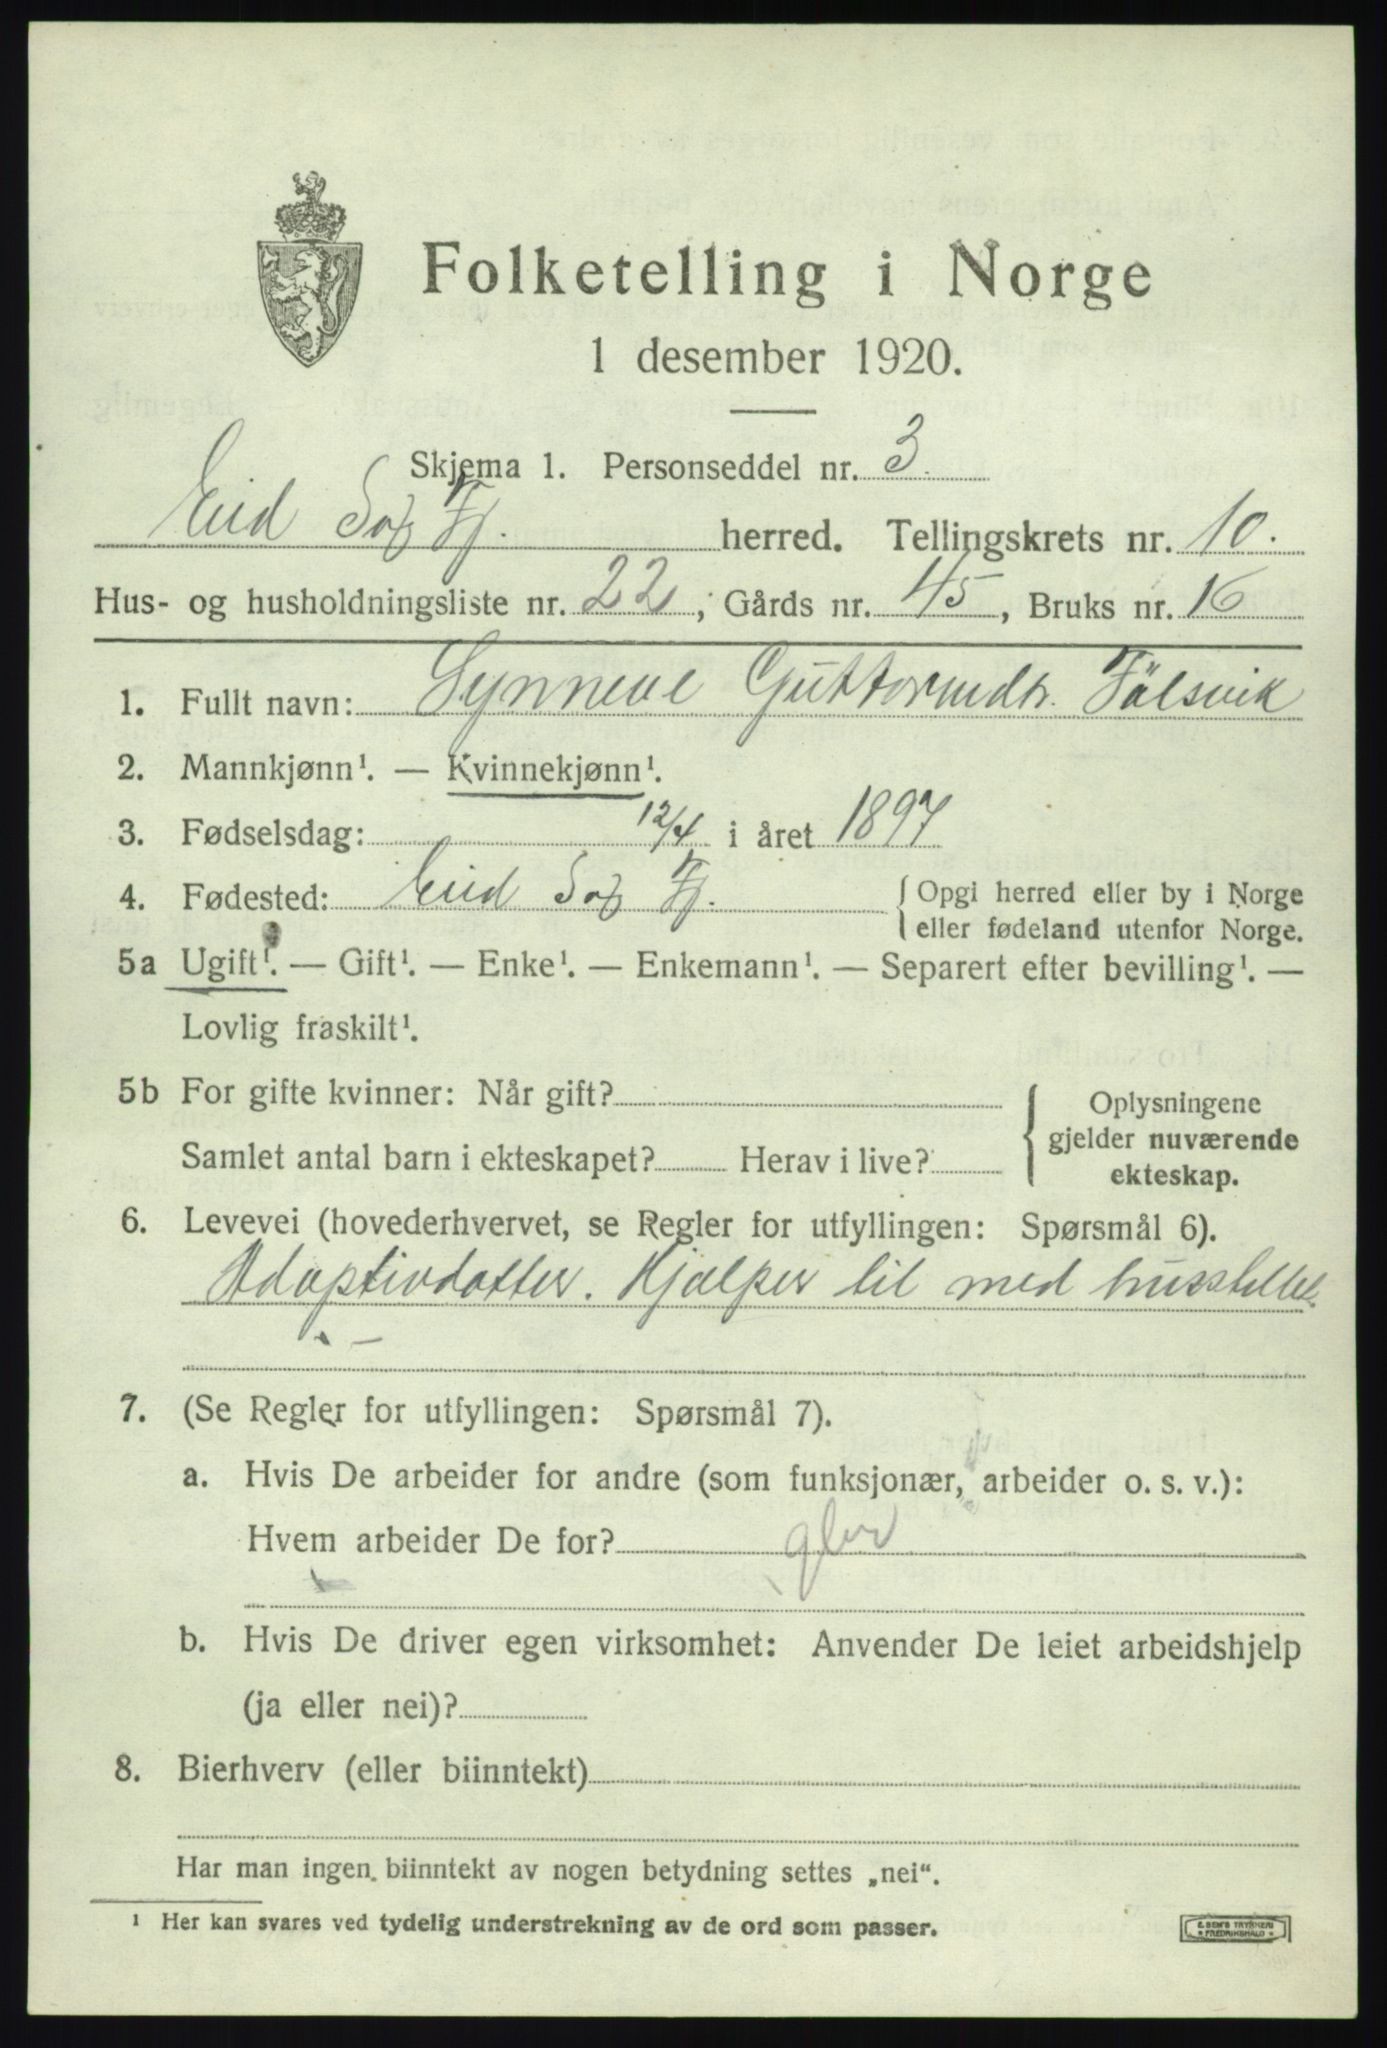 Folketelling i Norge
1 desember 1920.
Skjema 1. Personseddel nr. 3.
Eid Sogn Fj. herred. Tellingskrets nr. 10.
Hus- og husholdningsliste nr. 22, Gårds nr. 45, Bruks nr. 16
1. Fullt navn: Synneve Guttormdtr. Fölsvik
2. Mannkjønn¹. — Kvinnekjønn¹.
3. Fødselsdag: 12/4 i året 1897
4. Fødested: Eid Sogn Fj. { Opgi herred eller by i Norge
eller fødeland utenfor Norge.
5a Ugift¹. — Gift¹. — Enke¹. — Enkemann¹. — Separert efter bevilling¹. —
Lovlig fraskilt¹.
5b For gifte kvinner: Når gift? { Oplysningene
gjelder nuværende
Samlet antal barn i ekteskapet? Herav i live?
ekteskap.
6. Levevei (hovederhvervet, se Regler for utfyllingen: Spørsmål 6).
Adoptivdatter. Hjælper til med husstellet
7. (Se Regler for utfyllingen: Spørsmål 7).
a. Hvis De arbeider for andre (som funksjonær, arbeider o. s. v.):
Hvem arbeider De for?
b. Hvis De driver egen virksomhet: Anvender De leiet arbeidshjelp
(ja eller nei)?
8. Bierhverv (eller biinntekt)
Har man ingen biinntekt av nogen betydning settes „nei“.
¹ Her kan svares ved tydelig understrekning av de ord som passer.
E. SEM'S TRYKKERI
FREDRIKSHALD